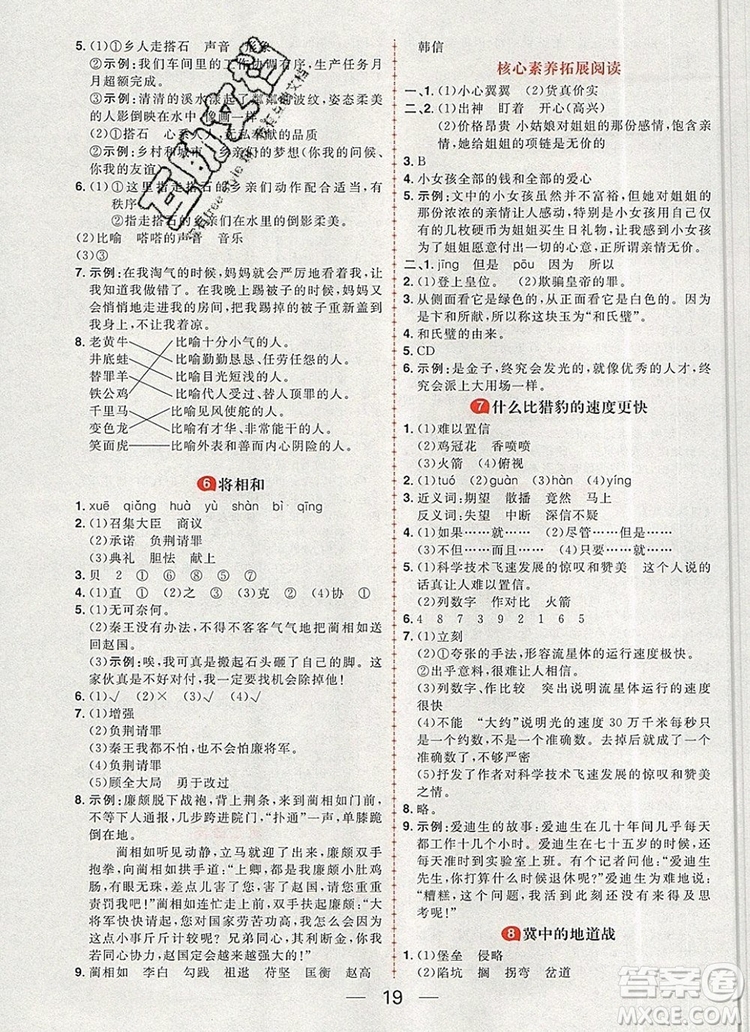 5. (1)①乡人走搭石 声音 形象
②示例：我们车间里的工人协调有序，目标
超额完成。
③示例：清清的溪水漾起了粼粼的波纹，姿态柔美
的人影倒映在水中，像画一样。
(2)搭石 心 无私奉献的品质
③示例：乡村和城市 乡亲们的梦想（你我的问候、
你我的友谊）
6. (1)①这里指走搭石的乡亲们动作配合适当，有
秩序。
②指走搭石的乡亲们在水里的倒影柔美。
(2)比喻 嗒嗒的声音 音乐
(3)③
7. 示例：在我淘气的时候，妈妈就会严厉地看着我，让
我知道我做错了。在我晚上睡觉的时候，妈妈又
会悄悄地走进我的房间，把我踢掉的被子重新盖到
我身上，不让我着凉。
8. 老黄牛 比喻十分小气的人。
井底蛙 比喻勤勤恳恳、任劳任怨的人。
替罪羊 比喻目光短浅的人。
铁公鸡 比喻代人受过、替人顶罪的人。
千里马 比喻见风使舵的人。
变色龙 比喻非常能干的人。
笑面虎 比喻外表和善而内心阴险的人。
6 将相和
1. xuē qiǎng huà yù shàn bì qīng
2. (1)召集大臣 商议
(2)承诺 负荆请罪
(3)典礼 胆怯 献上
3. 贝 2 ① ⑥ ② ⑤
4. (1)直 ① (2)之 ③ (3)负 ④ (4)协 ①
5. (1)无可奈何。
(2)秦王没有办法，不得不客客气气地把蔺相如送
回赵国。
(3)示例：唉，我可真是搬起石头砸了自己的脚。这
蔺相如真是不好对付，我一定要找机会除掉他！
6. (1)√ (2)× (3)× (4)√
7. (1)增强
(2)负荆请罪
(3)秦王我都不怕，会怕廉将军吗？
(4)负荆请罪
(5)顾全大局 勇于改过
8. 示例：廉颇脱下战袍，背上荆条，来到蔺相如门前，
不等下人通报，几步跨进院门，“扑通”一声，单膝
跪倒在地。
蔺相如听见动静，立马来到院里，看到廉颇双手
抱拳，神色羞愧地说：“蔺上卿，我廉颇小肚鸡
肠，有眼无珠，还到处说您坏话，请您重重
责罚我吧！”蔺相如忙拱手道：“上卿，廉颇双手
将军快快请起，您为了赵国的安危，
军快快请起！您为国家劳苦功高，我怎会因这样的
小事斤斤计较呢？兄弟同心，其利断金，只要我们
齐心协力，赵国定会越来越强大的！”
9. 蔺相如 李白 勾践 祖逖 苻坚 匡衡 赵括
韩信
核心素养拓展阅读
一、1. (1)小心翼翼 (2)货真价实
二、2. (1)出神 盯着 开心(高兴)
(2)价格昂贵 小姑娘对姐姐的那份感情，饱含亲
情、她给姐姐的那份亲情无价
3. B
4. 小女孩全部的钱和全部的爱心
5. 示例：文中的小女孩虽然并不富裕，但她对姐姐的
那份浓浓的亲情让人感动，特别是小女孩用自己仅
有的几枚硬币为姐姐买生日礼物，我看出了小女孩
为了姐姐愿意付出一切的心意，正所谓亲情无价。
二、1. jīng 但是 pōu 因为 所以
2. (1)登上皇位。 (2)欺骗皇帝的罪。
3. 从侧面看它是绿色的，从正面看它又是白色的
卞和所献，所以这块玉为“和氏璧”。
4. 和氏璧的由来。
5. CD
6. 示例：是金子，终究会发光的，就像优秀的人才，终
究会派上大用场一样。
7 什么比猎豹的速度更快
1. (1)难以置信
(2)鸡冠花 香喷喷
(3)火箭 (4)俯视
2. (1)dàn (2)guàn (3)hàn (4)yíng
3. 近义词：期望 散播 竟然 马上
反义词：失望 中断 深信不疑
4. (1)如果……就…… (2)尽管……
(3)不但……而且…… (4)只要……就……
5. (1)科学技术飞速发展的惊叹和赞美 这个人说的
话真让人难以置信。
(2)列数字 作对比 火箭
6. 4 8 7 3 9 2 1 6 5
7. (1)立刻
(2)①夸张的手法，形容流星体的运行速度极快。
②出乎意料，很难相信。突出流星体运行的速度
极快。
(3)列数字
(4)不能 “大约”说明光的速度 30 万千米每秒只
是一个约数，不是一个准确数。去掉后就成了准确数
了，不够严谨。
(5)抒发了作者对科学技术飞速发展的惊叹和赞美
之情。
8. 略。
9. 示例：爱迪生的故事：爱迪生在几十年间几乎每天
都工作十几个小时。爱迪生在七十五岁的时候，
还每天准时到实验室上班。一个记者问：“爱迪生先
生，你打算什么时候退休呢？”爱迪生无奈地说：
“糟糕，这个问题，我活到此刻还没来得及
考虑呢！”
8 冀中的地道战
1. (1)堡垒 侵略
(2)陷坑 搁 拐弯 岔道
19
答案圈
MXQE.COM